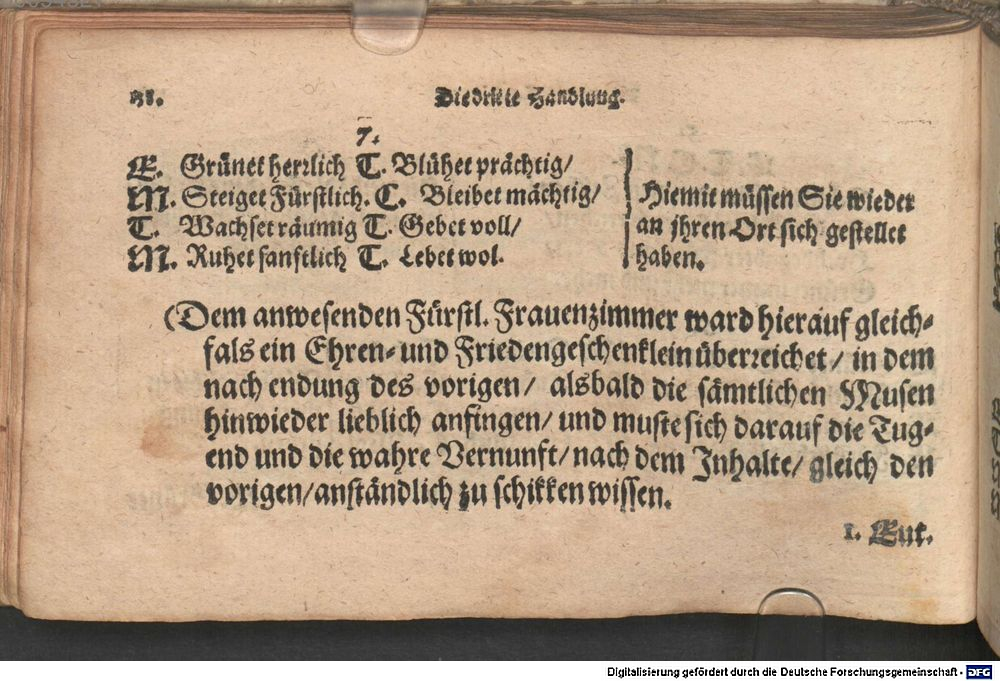 Die dritte Handlung.
7.
E. Grünet herrlich T. Blühet prächtig/
M. Steiget Fürstlich. C. Bleibet mächtig/
T. Wachset räumig T. Gebet voll/
M. Ruhet sanftlich T. Lebet wol.
Hiemit müssen Sie wieder
an jhren Ort sich gestellet
haben.
(Dem anwesenden Fürstl. Frauenzimmer ward hierauf gleich-
fals ein Ehren- und Friedengeschenklein überreichet/ in dem
nach endung des vorigen/ alsbald die sämtlichen Musen
hinwieder lieblich anfingen/ und muste sich darauf die Tug-
end und die wahre Vernunft/ nach dem Inhalte/ gleich den
vorigen/ anständlich zu schikken wissen.
1. Eut.
Digitalisierung gefördert durch die Deutsche Forschungsgemeinschaft - DFG